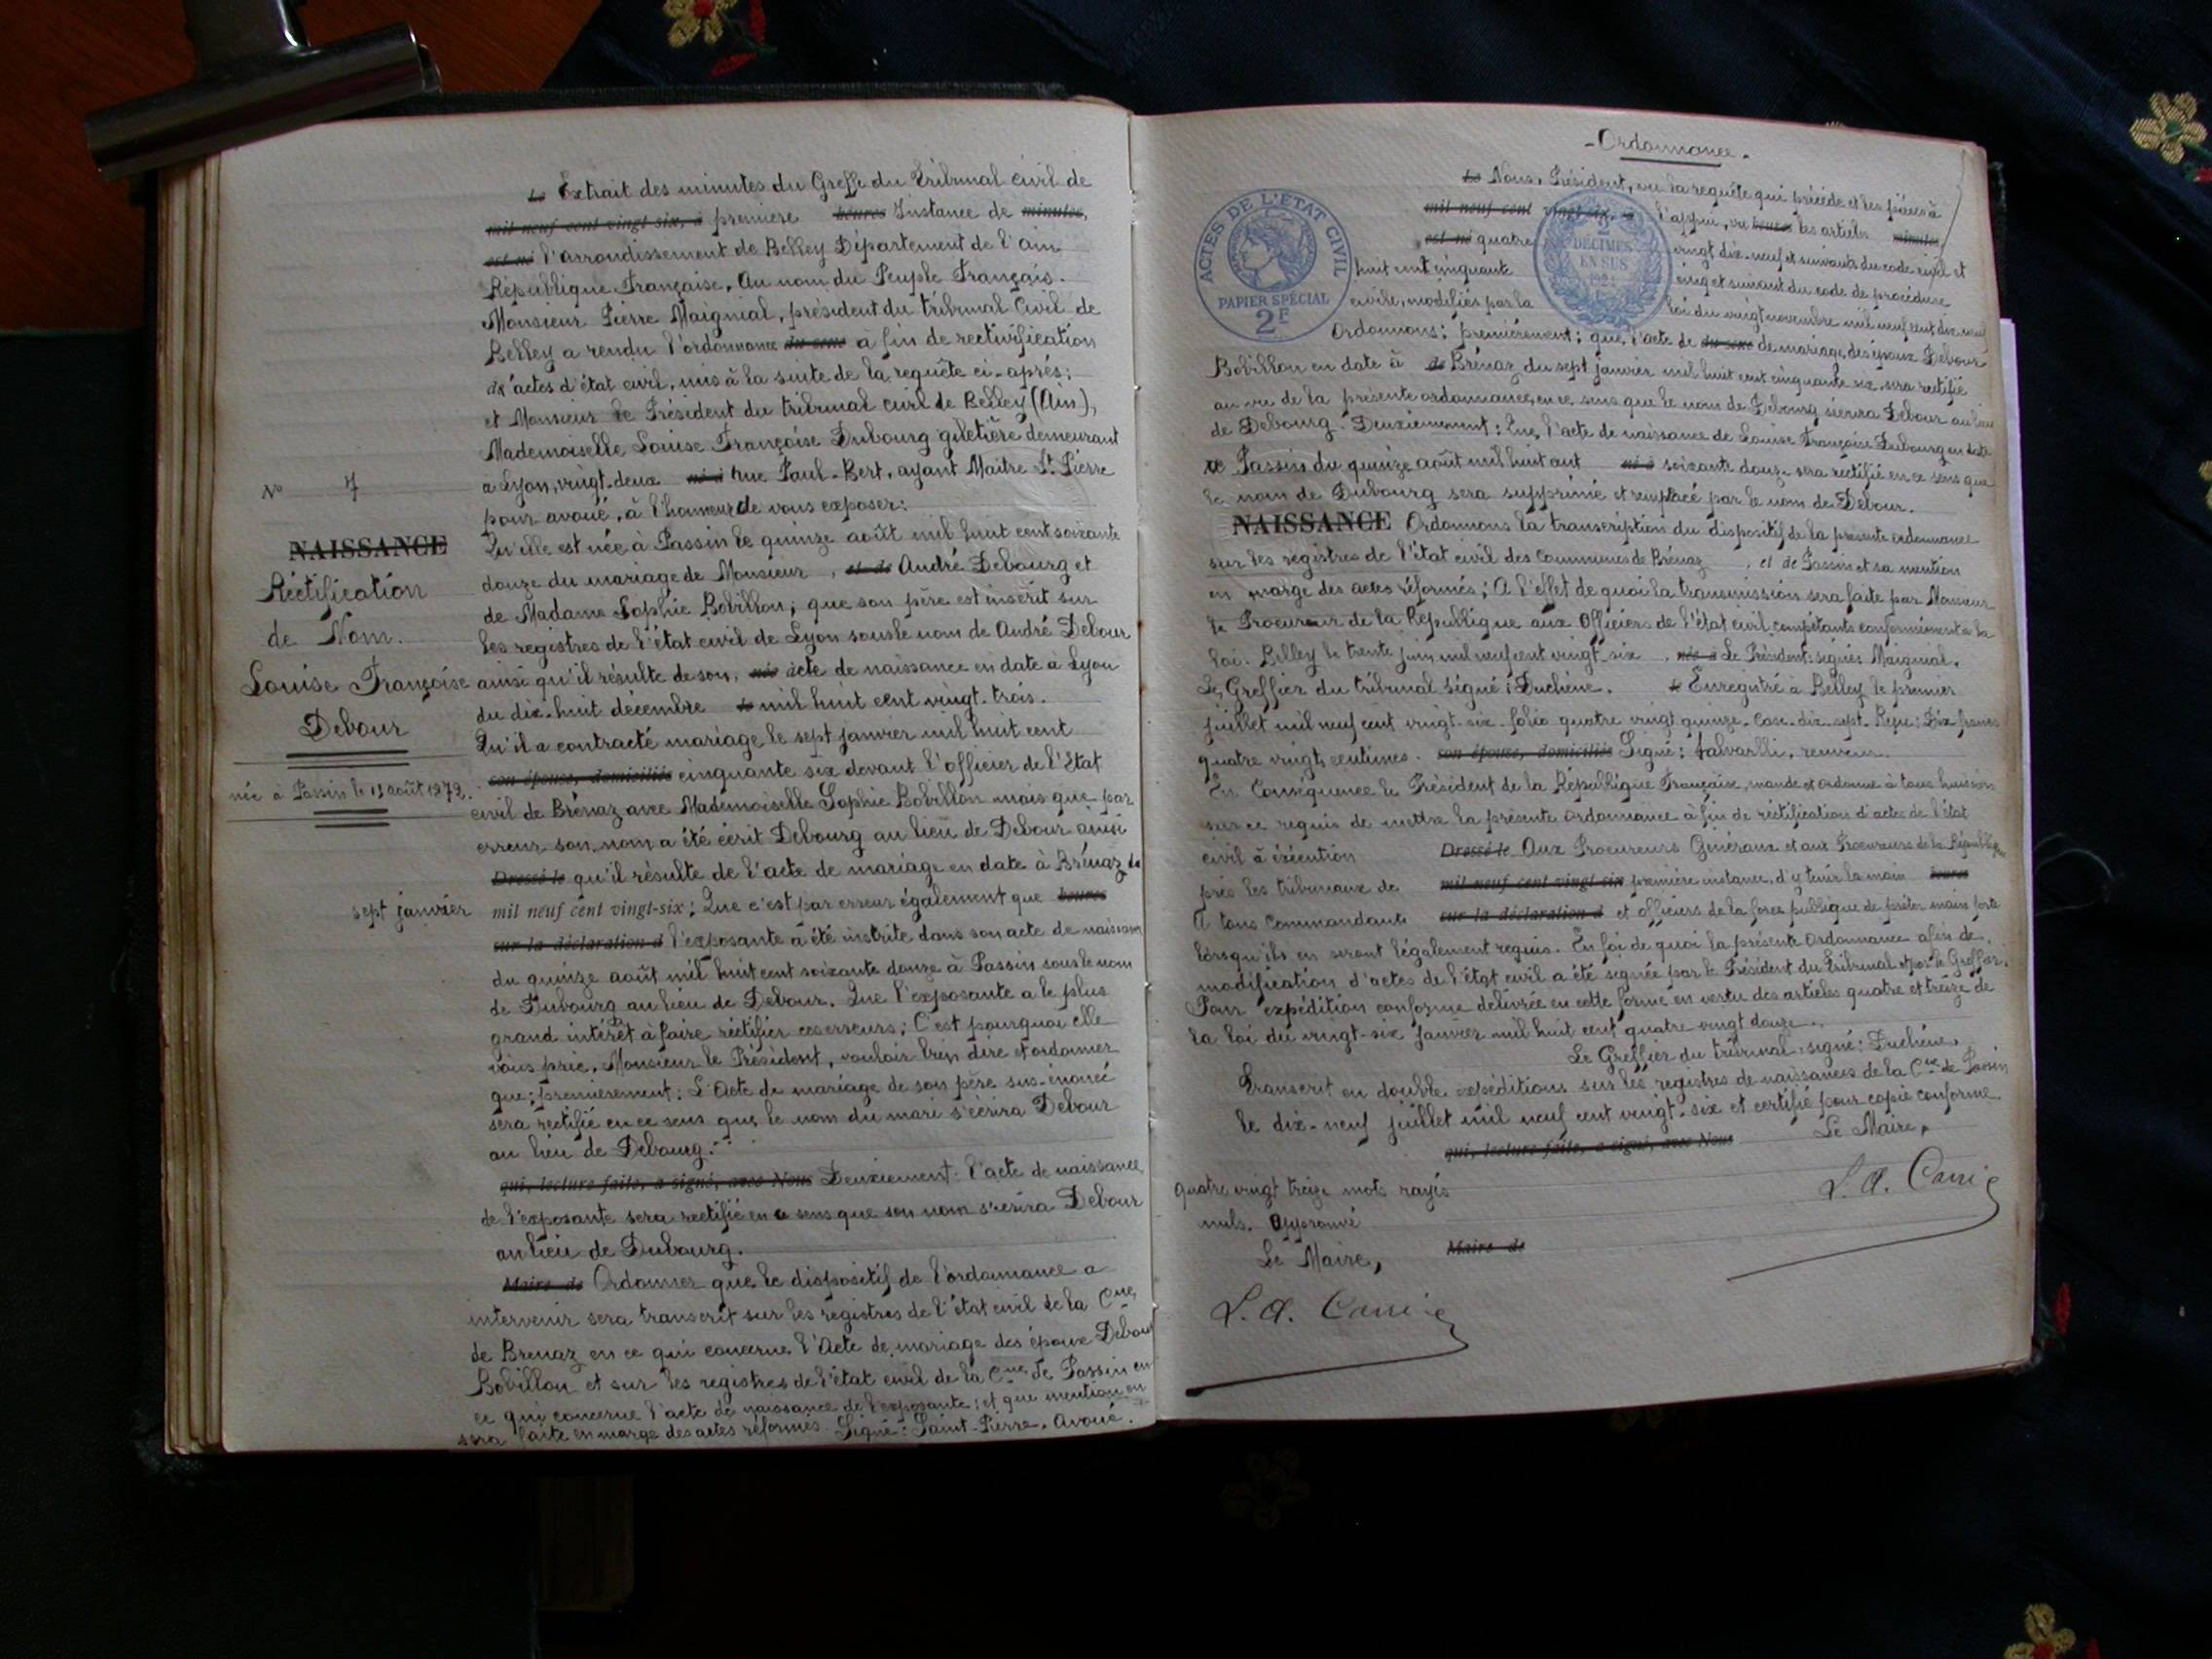 Le Extrait des minutes du Greffe du Tribunal civil de
mil neuf cent vingt-six, à première heures Instance de minutes,
est né l'arrondissement de Belley Département de l'ain
République Française, Au nom du Peuple Français.
Monsieur Pierre Maignial, président du tribunal Civil de
Belley a rendu l'ordonnance du sexe à fin de rectivification
d'actes d'état civil, mis à la suite de la requête ci-après:
et Monsieur le Président du tribunal civil de Belley (Ain),
Mademoiselle Louise Françoise Dubourg giletière demeurant
a Lyon, vingt-deux né à rue Paul-Bert, ayant Maitre St Pierre
pour avoué, à l'honneur de vous exposer:
Qu'elle est née à Passin le quinze août mil huit cent soixante
douze du mariage de Monsieur, et de André Debourg et
de Madame Sophie Bobillon; que son père est inscrit sur
les registres de l'état civil de Lyon sous le nom de André Debour
ainsi qu'il résulte de son, née acte de naissance en date à Lyon
du dix-huit décembre le mil huit cent vingt-trois.
Qu'il a contracté mariage le sept janvier mil huit cent
son épouse, domiciliés cinquante six devant l'officier de l'Etat
civil de Brénaz avec Mademoiselle Sophie Bobillon mais que par
erreur son nom a été écrit Debourg au lieu de Debour ainsi
Dressé le qu'il résulte de l'acte de mariage en date à Brénaz le
sept janvier mil neuf cent vingt-six; Que c'est par erreur également que heures
sur la déclaration d l'exposante a été inscrite dans son acte de naissance
du quinze août mil huit cent soixante douze à Passin sous le nom
de Dubourg au lieu de Debour. Que l'exposante a le plus
grand intérêt à faire réctifier ces erreurs; C'est pourquoi elle
vous prie, Monsieur le Président, vouloir bien dire et ordonner
que; premièrement: L'Acte de mariage de son père sus-énoncé
sera rectifié en ce sens que le nom du mari s'écrira Debour
au lieu de Debourg.
qui, lecture faite, a signé, avec Nous Deuxiement: l'acte de naissance
de l'exposante sera rectifié en ce sens que son nom s'écrira Debour
au lieu de Dubourg.
Maire de Ordonner que le dispositif de l'ordonnance a
intervenir sera transcrit sur les registres de l'état civil de la Cne
de Brenaz en ce qui concerne l'Acte de mariage des époux Debour
Bobillon et sur les registres de l'état civil de la Cne de Passin en
ce qui concerne l'acte de naissance de l'exposante; et que mention en
sera faite en marge des actes réformés. Signé: Saint-Pierre. Avoué.
No 7
NAISSANCE
Réctification
de Nom.
Louise Françoise
Debour
née à Passin le 15 août 1872.
-Ordonnance-
Le Nous, Président, vu la requête qui précède et les pièces à
mil neuf cent vingt-six, à l'appui, vu heures les articles minutes,
est né quatre vingt dix-neuf et suivants du code civil et
huit cent cinquante cinq et suivant du code de procédure
civile, modifiés par la loi du vingt novembre mil neuf cent dix neuf
ACTES DE L'ÉTAT CIVIL
PAPIER SPÉCIAL
2F
2
DÉCIMES
EN SUS
Ordonnons; premièrement; que, l'acte de du sexe de mariage des époux Debour
Bobillon en date à de Brénaz du sept janvier mil huit cent cinquante six sera rectifié
au vu de la présente ordonnance, en ce sens que le nom de Debourg sera Debour au lieu
de Debourg. Deuxiement: Que, l'acte de naissance de Louise Françoise Dubourg en date
de Passin du quinze août mil huit cent né à soixante douze sera rectifié en ce sens que
le nom de Dubourg sera supprimé et remplacé par le nom de Debour.
NAISSANCE Ordonnons la transcription du dispositif de la présente ordonnance
sur les registres de l'état civil des Communes de Brénaz, et de Passin et sa mention
en marge des actes réformés; A l'effet de quoi la transmission sera faite par Monsieur
le Procureur de la République aux Officiers de l'état civil compétants conformément à la
loi. Belley le trente juin mil neuf cent vingt-six, née à Le Président: signés Maignial.
Le Greffier du tribunal signé: Duchêne. le Enregistré à Belley le premier
juillet mil neuf cent vingt-six folio quatre vingt quinze. Case dix-sept. Reçu: Dix francs
quatre vingts centimes. son épouse, domiciliés Signé: receveur.
En Conséquence le Président de la République Française, mande et ordonne à tous huissiers
sur ce requis de mettre la présente Ordonnance à fin de réctification d'actes de l'état
civil à éxécution Dressé le Aux Procureurs Généraux et aux Procureurs de la République
près les tribunaux de mil neuf cent vingt-six première instance, d'y tenir la main heures
A tous Commandants sur la déclaration d et officiers de la force publique de prêter main forte
lorsqu'ils en seront légalement requis. En foi de quoi la présente Ordonnance afin de
modification d'actes de l'état civil a été signée par le Président du Tribunal et par le Greffier.
Pour expédition conforme délivrée en cette forme en vertu des articles quatre et treize de
la loi du vingt-six janvier mil huit cent quatre vingt douze.
Le Greffier du tribunal: signé: Duchêne.
Transcrit en double expéditions sur les registres de naissances de la Cne de Passin
le dix-neuf juillet mil neuf cent vingt-six et certifié pour copie conforme.
qui, lecture faite, a signé, avec Nous Le Maire,
quatre vingt treize mots rayés
nuls. Approuvé
Le Maire,
Maire de